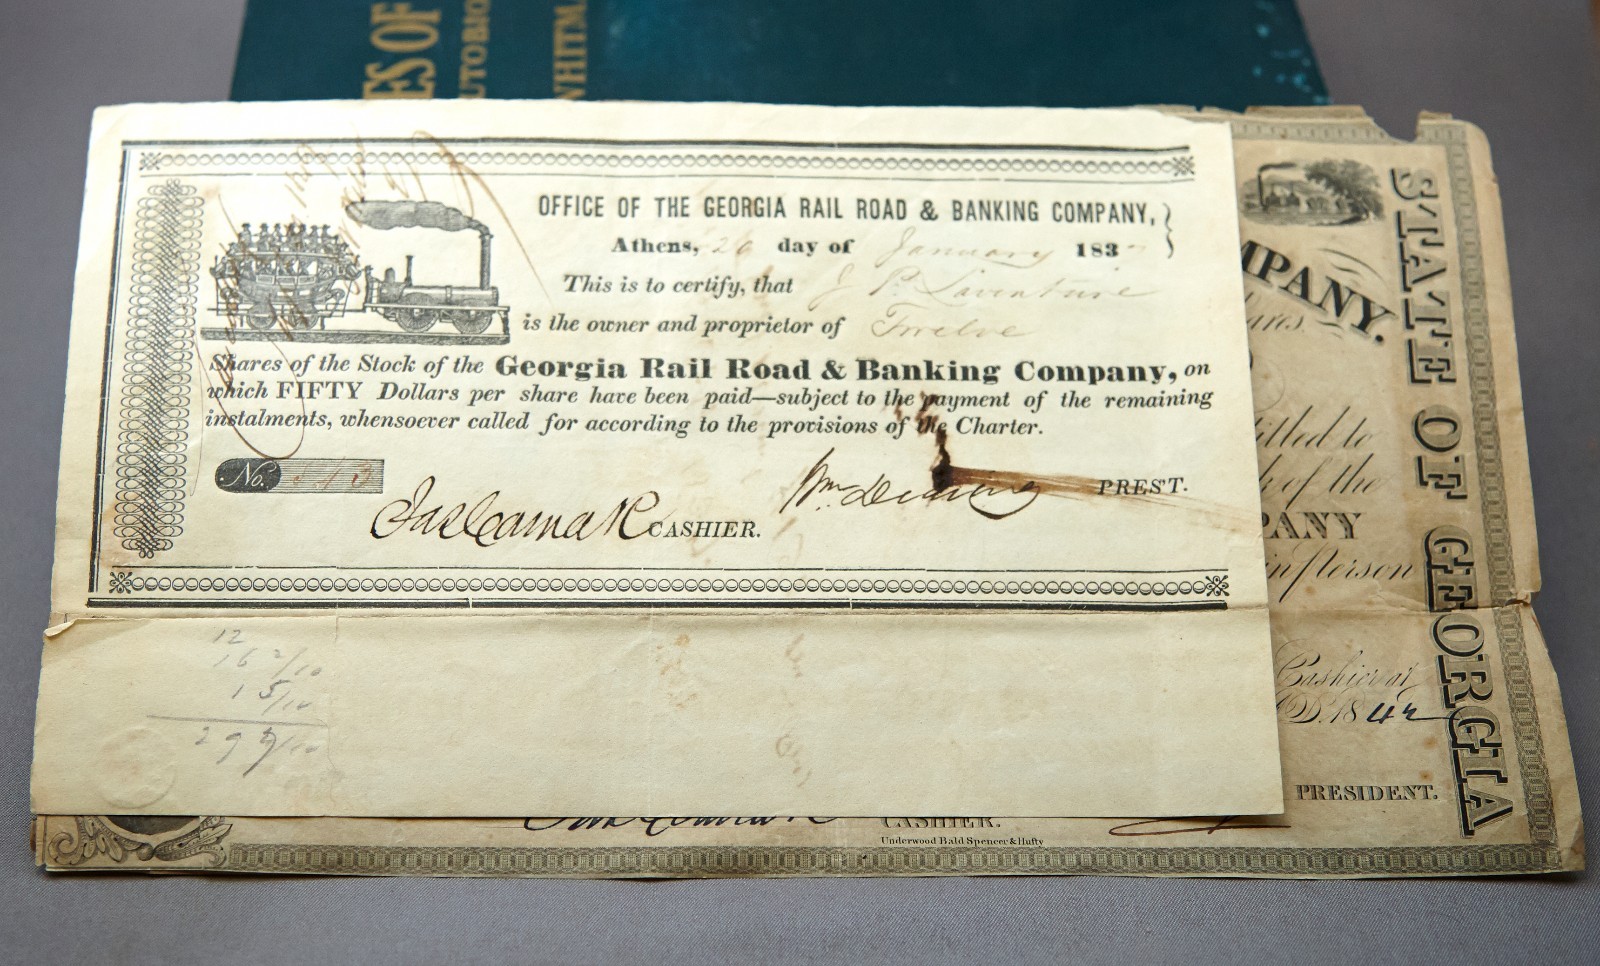 ES OF
UTOBIO
WHITM
OFFICE OF THE GEORGIA RAIL ROAD & BANKING COMPANY,
Athens, 26 day of January 183
This is to certify, that J P. Laventure
is the owner and proprietor of Twelve
Shares of the Stock of the Georgia Rail Road & Banking Company, on
which FIFTY Dollars per share have been paid—subject to the payment of the remaining
instalments, whensoever called for according to the provisions of the Charter.
No.
Jas Camak CASHIER.
Wm Dearing PRES'T.
12
16 2/10
1 5/10
29 7/10
MPANY.
ares
titled to
k of the
PANY
in person
Cashier at
D. 18 42
PRESIDENT.
CASHIER.
Underwood Bald Spencer & Hufty
STATE OF GEORGIA